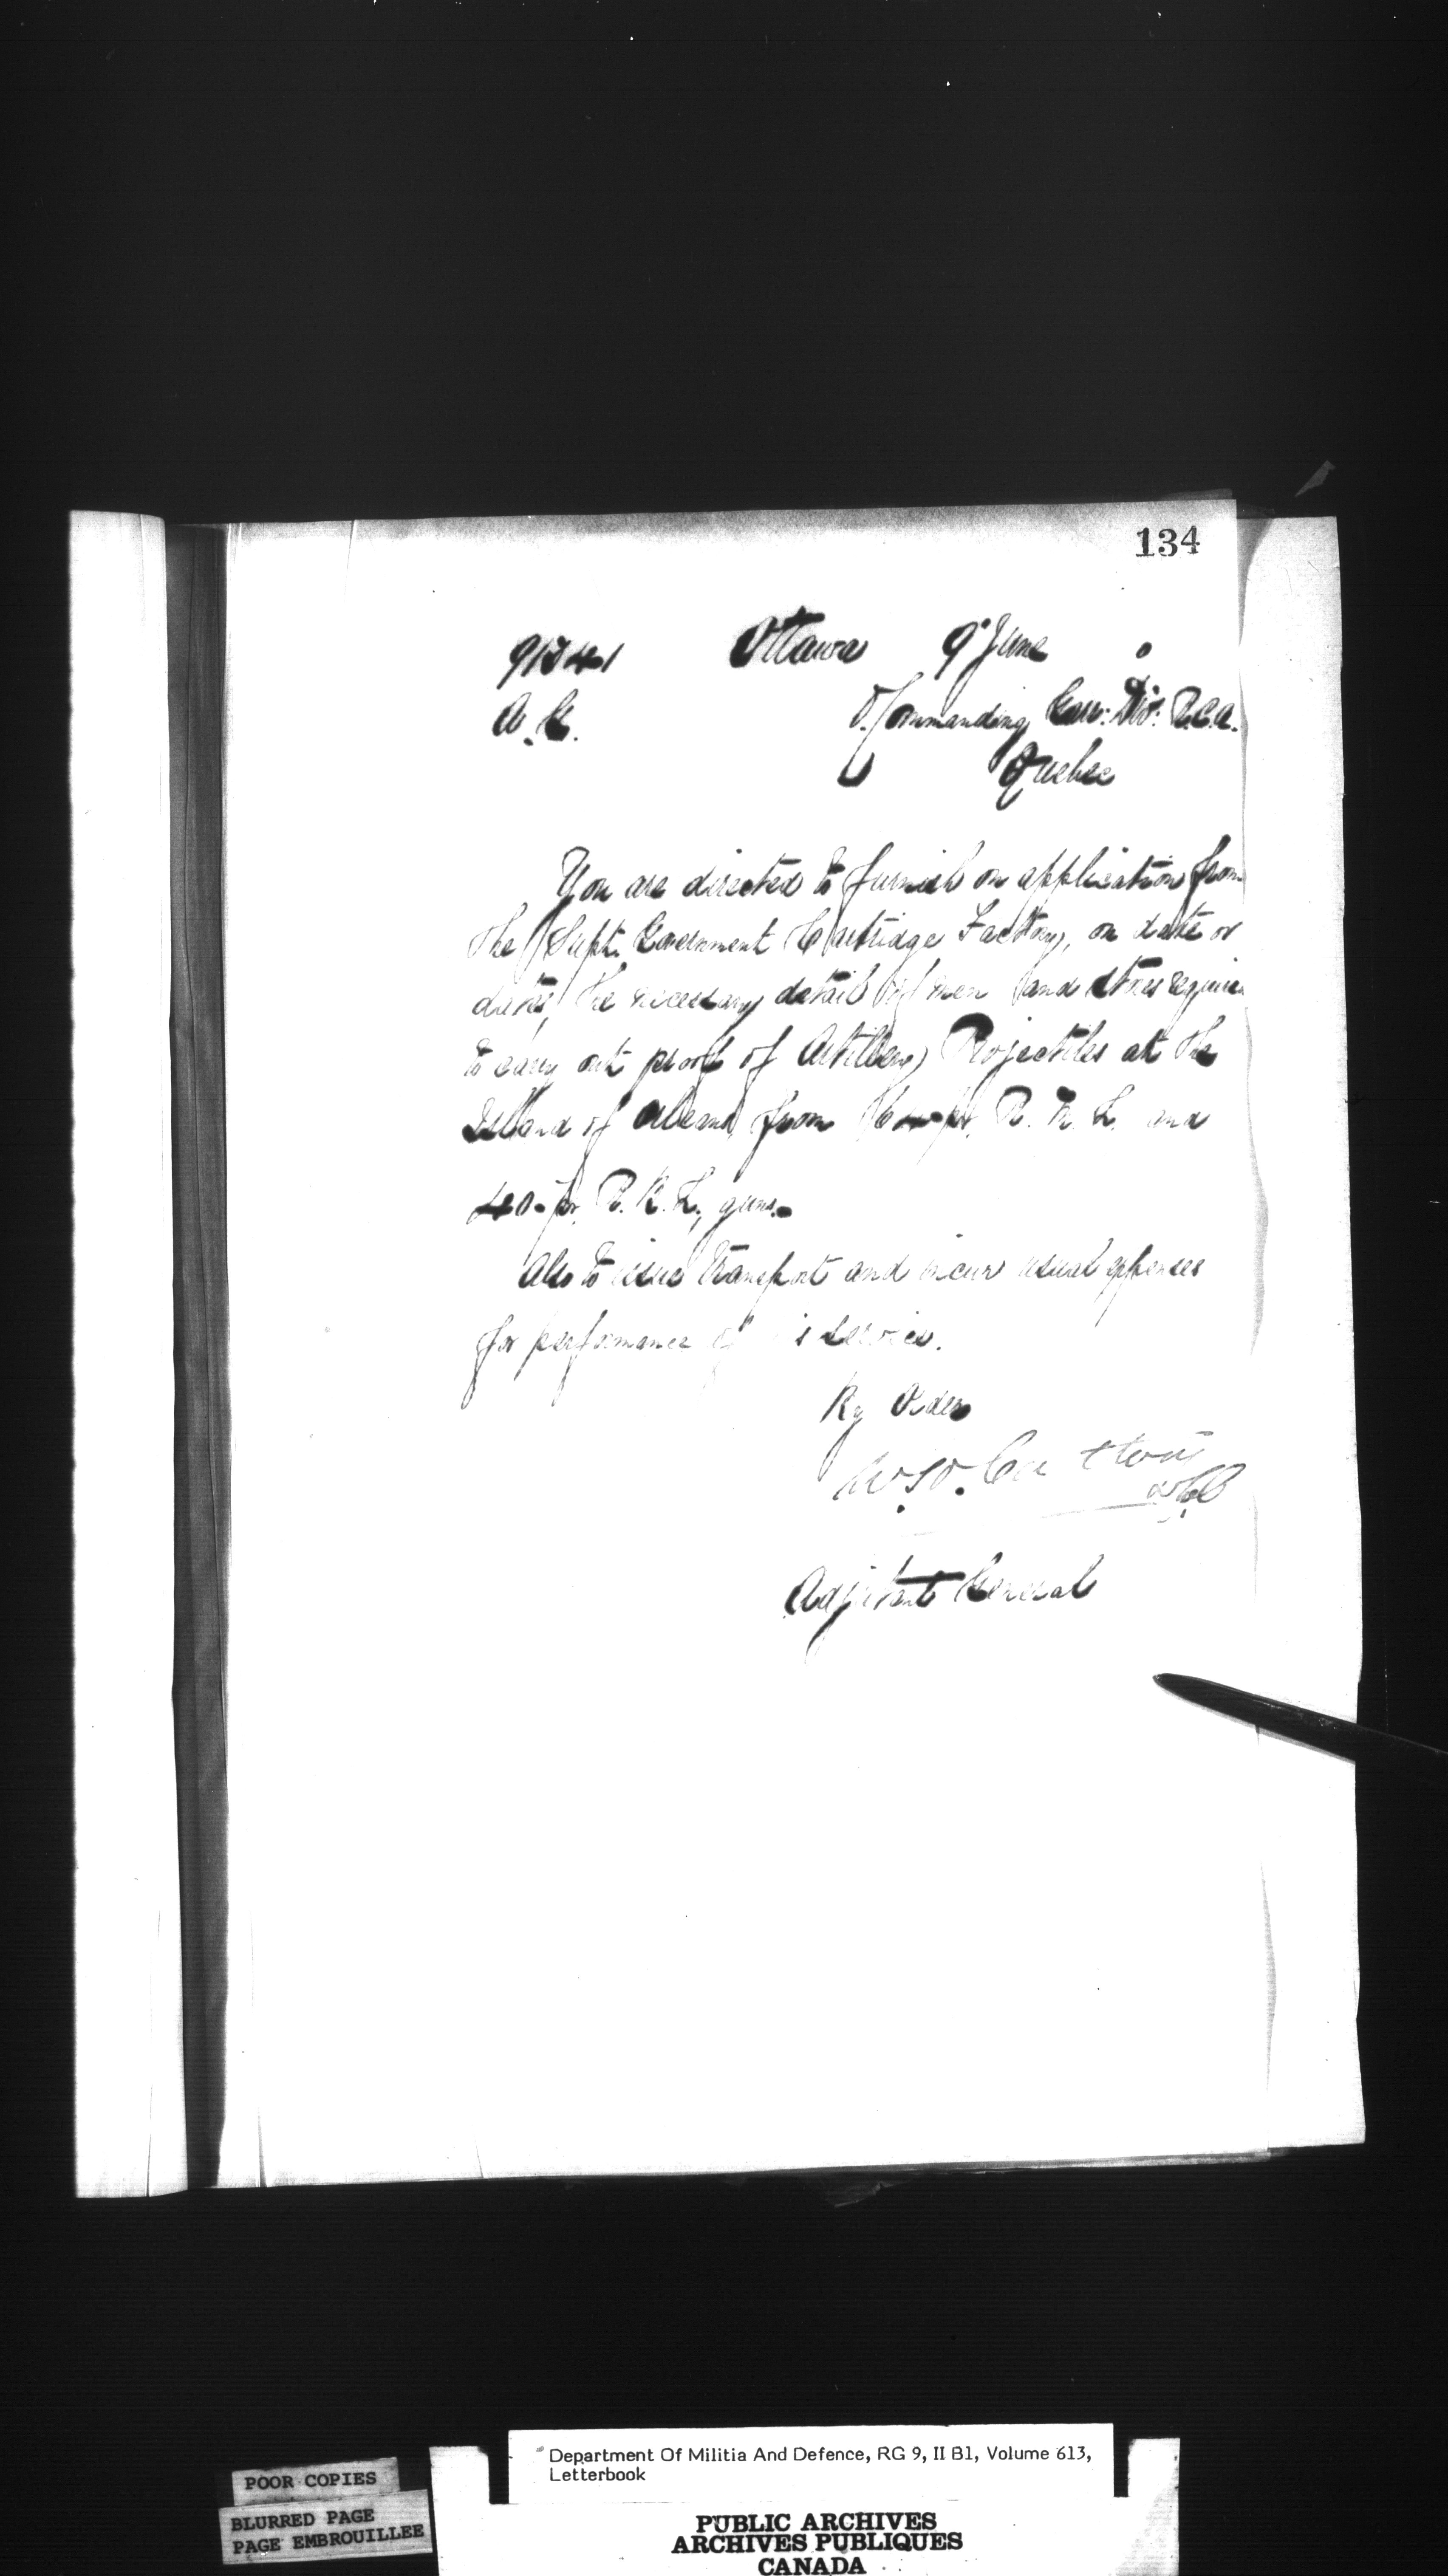 134
Ottawa 9 June
A.G.
O. Commanding Garr: Div: R.C.A.
Quebec
You are directed to furnish on application from
the Supt. Government Cartridge Factory, on date or
dates, the necessary detail of men and stores require
to carry out proof of Artillery Projectiles at the
Island of Orleans, from pr. R. M. L. and
40-pr. R. B. L., guns.
Also to issue transport and incur usual expenses
for performance of is service.
By Order
Adjutant General
Department Of Militia And Defence, RG 9, II B1, Volume 613,
Letterbook
POOR COPIES
BLURRED PAGE
PAGE EMBROUILLEE
PUBLIC ARCHIVES
ARCHIVES PUBLIQUES
CANADA